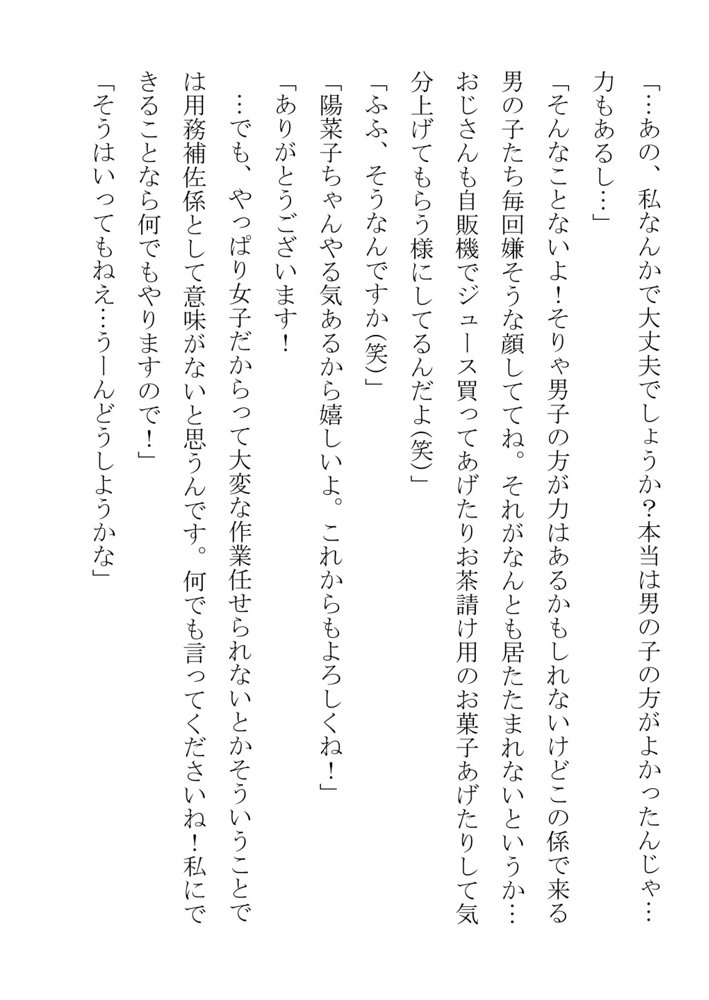 「…あの、私なんかで大丈夫でしょうか？本当は男の子の方がよかったんじゃ…
力もあるし…」
「そんなことないよ！そりゃ男子の方が力はあるかもしれないけどこの係で来る
男の子たち毎回嫌そうな顔しててね。それがなんとも居たたまれないというか…
おじさんも自販機でジュース買ってあげたりお茶請け用のお菓子あげたりして気
分上げてもらう様にしてるんだよ(笑)」
「ふふ、そうなんですか(笑)」
「陽菜子ちゃんやる気あるから嬉しいよ。これからもよろしくね！」
「ありがとうございます！
…でも、やっぱり女子だからって大変な作業任せられないとかそういうことで
は用務補佐係として意味がないと思うんです。何でも言ってくださいね！私にで
きることなら何でもやりますので！」
「そうはいってもねえ…うーんどうしようかな」